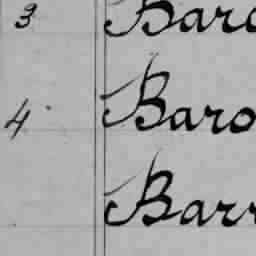 3 Baro
4 Baro
Barr